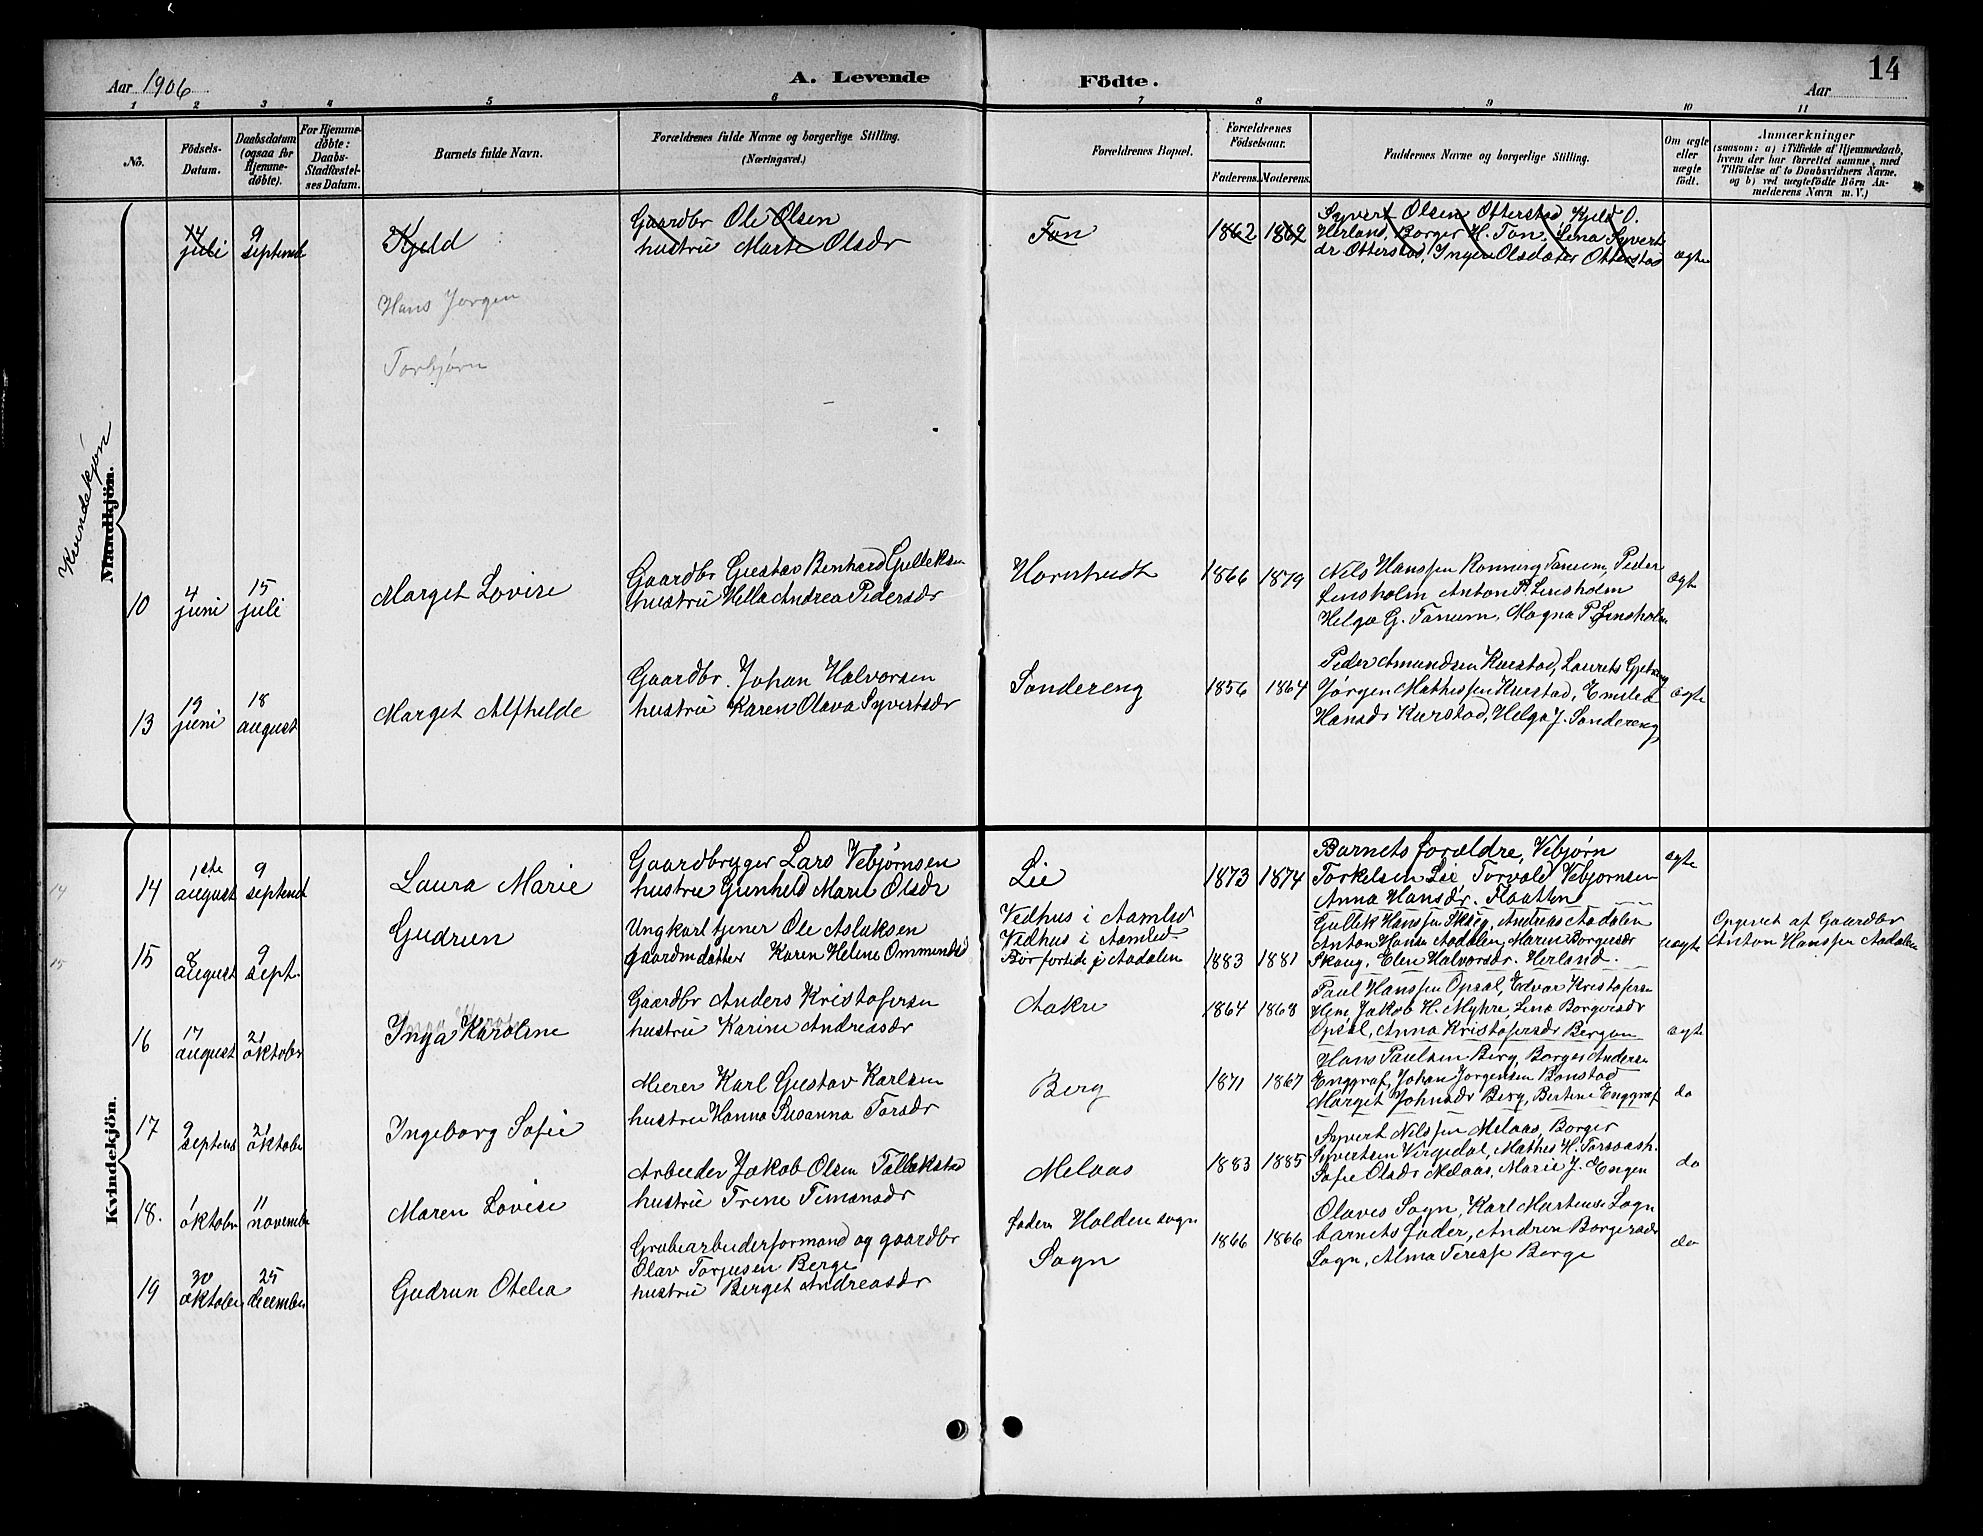 Aar 1906
A. Levende
Födte.
14
Aar
1 2 3 4 5 6 7 8 9 10 11
No.
Födsels-
Datum.
Daabsdatum
(ogsaa for
Hjemme-
döbte).
For Hjemme-
döbte:
Daabs-
Stadfæstel-
ses Datum.
Barnets fulde Navn.
Forældrenes fulde Navne og borgerlige Stilling.
(Næringsvei.)
Forældrenes Bopæl.
Forældrenes
Födselsaar.
Faderens. Moderens.
Faddernes Navne og borgerlige Stilling.
Om ægte
eller
uægte
födt.
Anmærkninger
(saasom: a) i Tilfælde af Hjemmedaab,
hvem der har forrettet samme, med
Tilföielse af to Daabsvidners Navne.
og b) ved uægtefödte Börn An-
melderens Navn m. V.)
Kvindekjøn
Mandkjön.
14
juli
9
septemb
Kjeld
Gaardbr Ole Olsen
hustru Marte Olsdr
Ton
1862 1862
Syvert Olsen Otterstad, Kjeld O.
Herland, Borger H. Ton, Lena Syvert
dr Otterstad, Ingen Olsdater Otterstad
ægte
Hans Jørgen
Torbjørn
10
4
juni
15
juli
Marget Lovise
Gaardbr Gustav Benhard Gulleksen
hustru Hella Andrea Pedersdr
Hornhudt
1866 1879
Nils Hanssen Ronning Tanum, Peder
Linsholm Anton P. Linsholm
Helga G. Tanum, Magna P Linsholm
ægte
13
19
juni
18
august
Marget Alfhilde
Gaardbr. Johan Halvorsen
hustru Karen Olava Syvertsdr
Sondereng
1856 1864
Peder Amundsen Kurstad, Laurets
Jørgen Mathissen Kurstad, Emilea
Hansdr Kurstad, Helga J. Sondereng
ægte
Kvindekjön.
14
14
1ste
august
9
septemb
Laura Marie
Gaardbruger Lars Vebjørnsen
hustru Gunhild Marie Olsdr
Lie
1873 1874
Barnets forældre, Vebjørn
Torkelsen Lie Torvald Vebjornsen
Anna Hansdr. Flaatten
ægte
15
15
8
august
9
sept.
Gudrun
Ungkarl tjener Ole Aslaksen
gaardmdatter Karen Helene Ommundsd
Vedhus i Aamlid
Vedhus i Aamlid
Bør fortide i Aadalen
1883 1881
Gullek Hanssen Skaug, Andreas Aadalen
Anton Hansen Aadalen, Maren Borgersdr
Skaug, Elen Halvorsdr. Herland.
uægte
Opgivet af Gaardbr
Anton Hanssen Aadalen
16
17
august
21
oktober
Inga Karoline
Gaardbr Anders Kristofersen
hustru Karine Andreasdr
Aakre
1864 1868
Paul Hanssen Opsal, Edvar Kristofersen
Hem, Jakob H. Myhre, Lina Borgersdr
Opsal, Anna Kristofersdr Bergan
ægte
17
9
septemb
21
oktober
Ingeborg Sofie
Murer Karl Gustav Karlsen
hustru Hanna Susanna Torsdr
Berg
1871 1867
Hans Paulsen Berg, Borger Andersen
Enggraf, Johan Jorgensen Bonstad
Marget Johnsdr Berg, Bertine Enggraf
do
18.
1
oktober
11
november
Maren Lovise
Arbeider Jakob Olsen Tollekstad
hustru Trine Timansdr
Melaas
1883 1885
Syvert Nilssen Melaas, Borger
Syvertsen Virgedal, Mathes H.
Sofie Olsdr Melaas, Marie J. Engen
do
19
30
oktober
25
december
Gudrun Otelia
Grubearbeiderformand og gaardbr
Olav Torjusen Berge
hustru Berget Andreasdr
faderen Holden sogn
Sogn
1866 1866
Olaves Sogn, Karl Martinsen Sogn
barnets fader, Andrea Borgersdr
Sogn, Alma Terese Borge
do